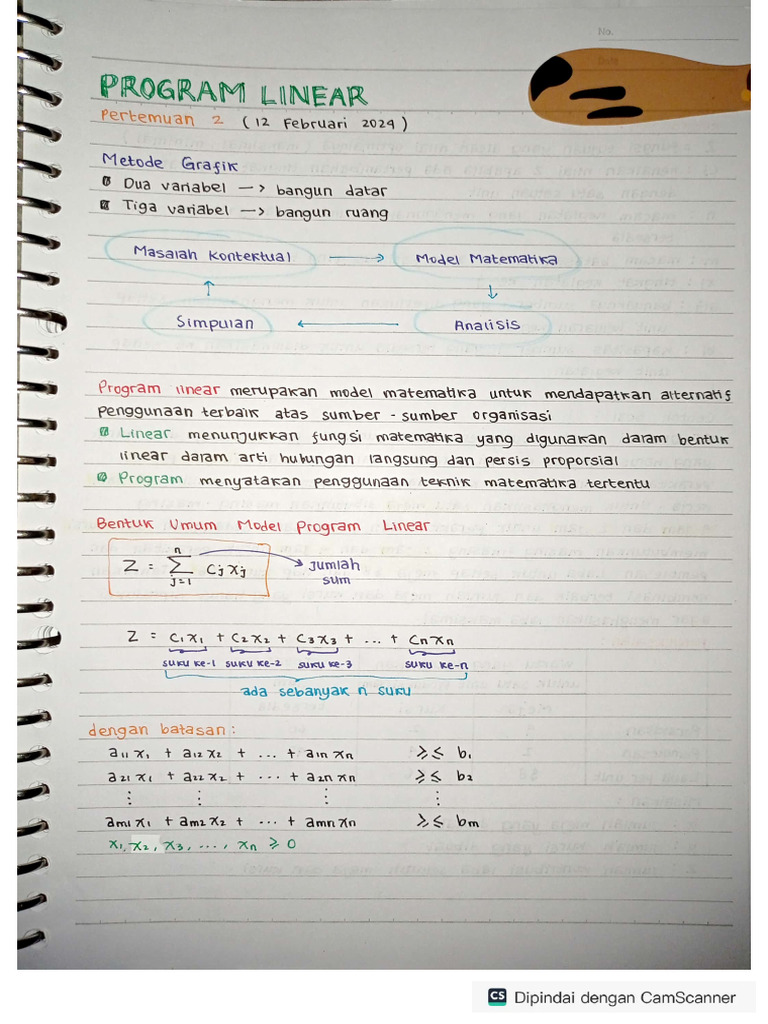 No.
Date
PROGRAM LINEAR
Pertemuan 2 (12 Februari 2024)
Metode Grafik
Dua variabel —> bangun datar
Tiga variabel —> bangun ruang
Masalah Kontektual → Model Matematika
↑ ↓
Simpulan ← Analisis
Program linear merupakan model matematika untuk mendapatkan alternatif
penggunaan terbaik atas sumber - sumber organisasi
Linear menunjukkan fungsi matematika yang digunakan dalam bentuk
linear dalam arti hubungan langsung dan persis proporsial
Program menyatakan penggunaan teknik matematika tertentu
Bentuk Umum Model Program Linear
Z = ∑ⁿⱼ₌₁ Cⱼxⱼ → jumlah
sum
Z = C₁x₁ + C₂x₂ + C₃x₃ + ... + Cₙxₙ
suku ke-1 suku ke-2 suku ke-3 suku ke-n
ada sebanyak n suku
dengan batasan :
a₁₁x₁ + a₁₂x₂ + ... + a₁ₙxₙ ≥≤ b₁
a₂₁x₁ + a₂₂x₂ + ... + a₂ₙxₙ ≥≤ b₂
⋮ ⋮ ⋮ ⋮
aₘ₁x₁ + aₘ₂x₂ + ... + aₘₙxₙ ≥≤ bₘ
x₁, x₂, x₃, ..., xₙ ≥ 0
CS Dipindai dengan CamScanner